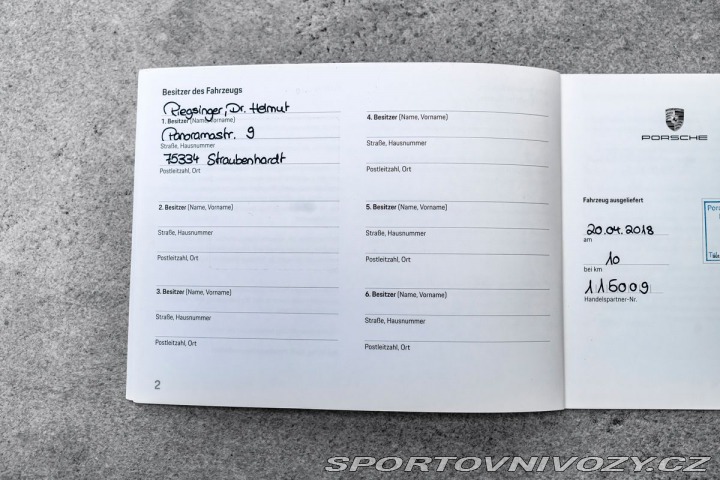 Besitzer des Fahrzeugs
Riegsinger, Dr. Helmut
1. Besitzer (Name, Vorname)
Panoramastr. 9
Straße, Hausnummer
75334 Straubenhardt
Postleitzahl, Ort
2. Besitzer (Name, Vorname)
Straße, Hausnummer
Postleitzahl, Ort
3. Besitzer (Name, Vorname)
Straße, Hausnummer
Postleitzahl, Ort
2
4. Besitzer (Name, Vorname)
Straße, Hausnummer
Postleitzahl, Ort
5. Besitzer (Name, Vorname)
Straße, Hausnummer
Postleitzahl, Ort
6. Besitzer (Name, Vorname)
Straße, Hausnummer
Postleitzahl, Ort
PORSCHE
Fahrzeug ausgeliefert
20.04.2018
am
10
bei km
115009
Handelspartner-Nr.
SPORTOVNIVOZY.CZ